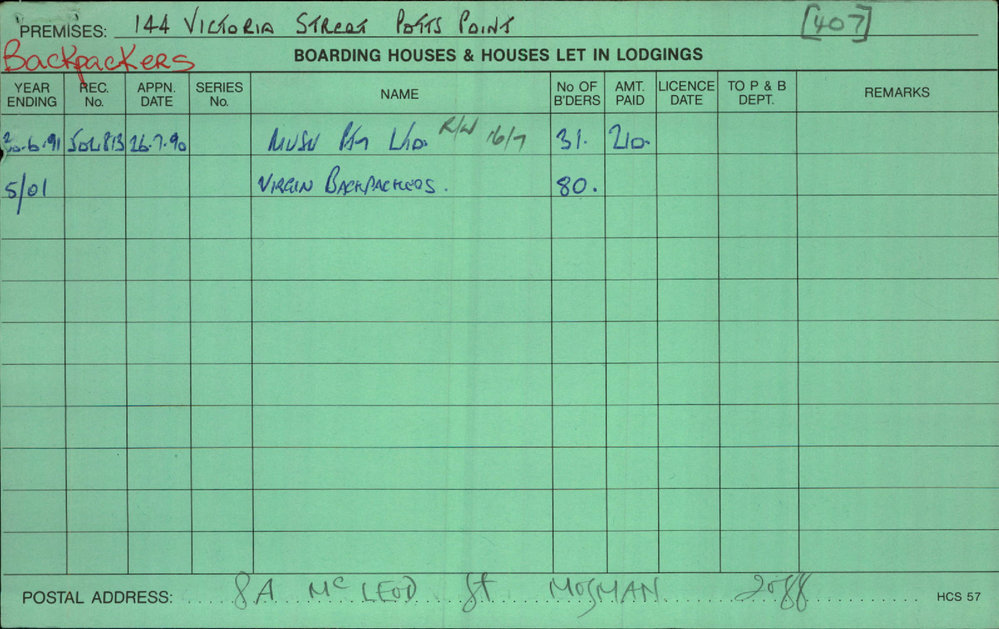 PREMISES: 144 VICTORIA STREET POTTS POINT [407]
BackpackERS
BOARDING HOUSES & HOUSES LET IN LODGINGS
YEAR ENDING REC. No. APPN. DATE SERIES No. NAME No OF B'DERS AMT. PAID LICENCE DATE TO P & B DEPT. REMARKS
30.6.91 26.7.90 PTY LTD. R/W 16/7 31. 210.
5/01 VIRGIN BACKPACKERS. 80.
POSTAL ADDRESS: 8A McLEOD St MOSMAN 2088 HCS 57